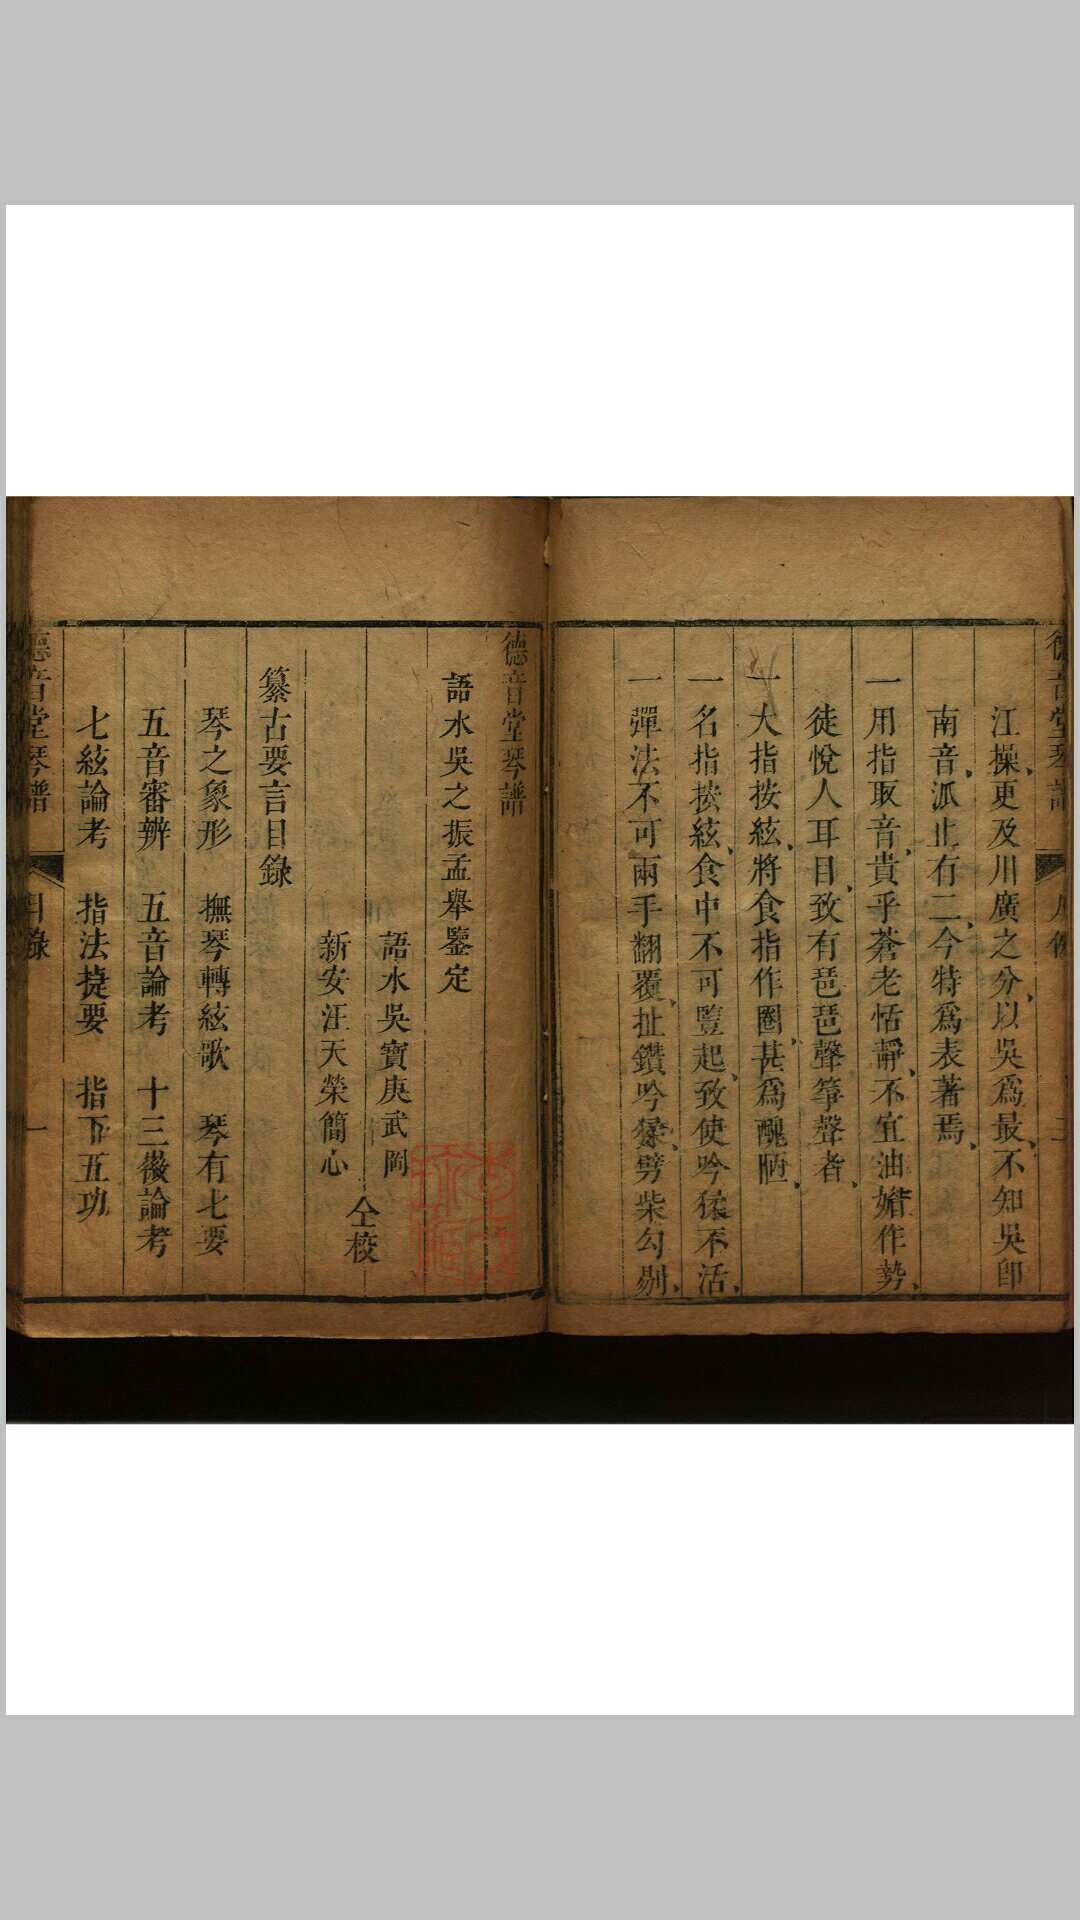 德音堂琴譜
凡例
江操更及川廣之分以吳爲最不知吳即
南音派止有二今特爲表著焉
一用指取音貴乎蒼老恬靜不宜油嬌作勢
徒悅人耳目致有琵琶聲箏聲者
一大指按絃將食指作圈甚爲醜陋
一名指按絃食中不可豎起致使吟猱不活
一彈法不可兩手翻覆扯鑽吟猱劈柴勾剔
德音堂琴譜
語水吳之振孟舉鑒定
語水吳寶庚武岡
新安汪天榮簡心
仝校
纂古要言目錄
琴之象形 撫琴轉絃歌 琴有七要
五音審辨 五音論考 十三徽論考
七絃論考 指法㨗要 指下五功
德音堂琴譜
目錄
一